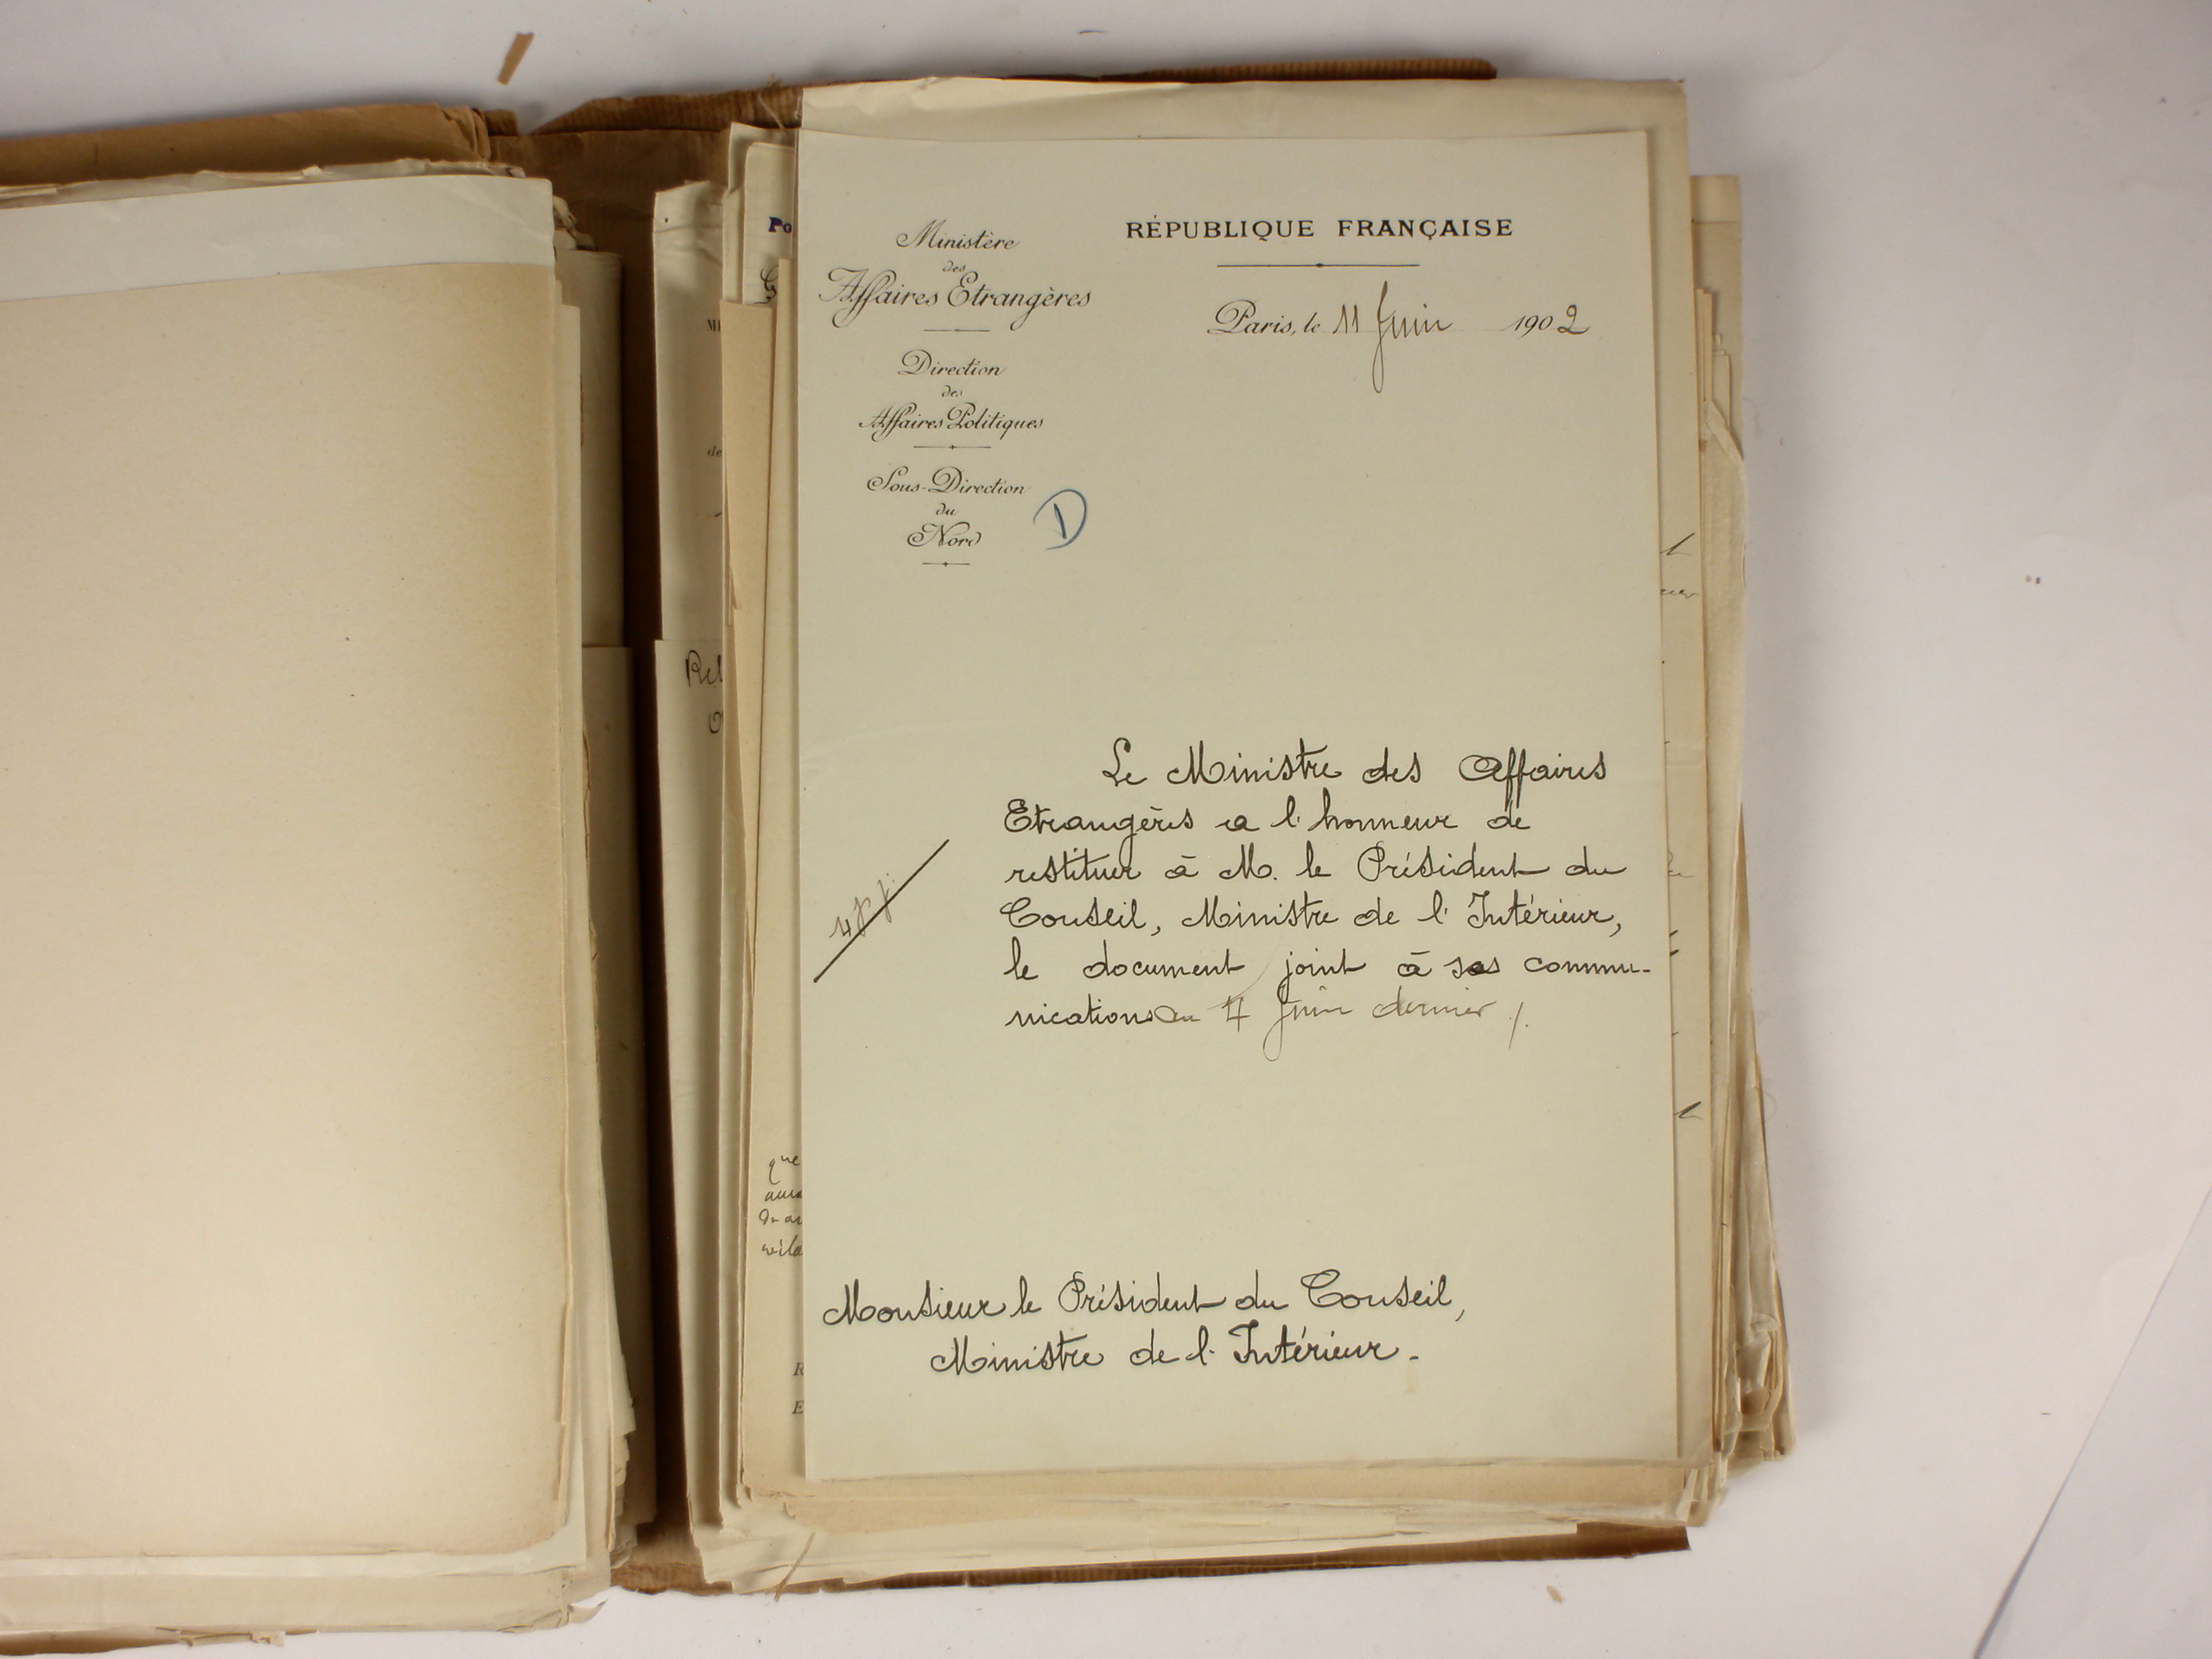 Ministère
des
Affaires Etrangères
Direction
des
Affaires Politiques
Sous-Direction
du
Nord
D
RÉPUBLIQUE FRANÇAISE
Paris, le 11 Juin 1902
Le Ministre des Affaires
Etrangères a l'honneur de
restituer à M. le Président du
Conseil, Ministre de l'Intérieur,
le document joint à ses commu-
nications du 4 Juin dernier ./.
Monsieur le Président du Conseil,
Ministre de l'Intérieur.
Po
de
Rel
que
R
E